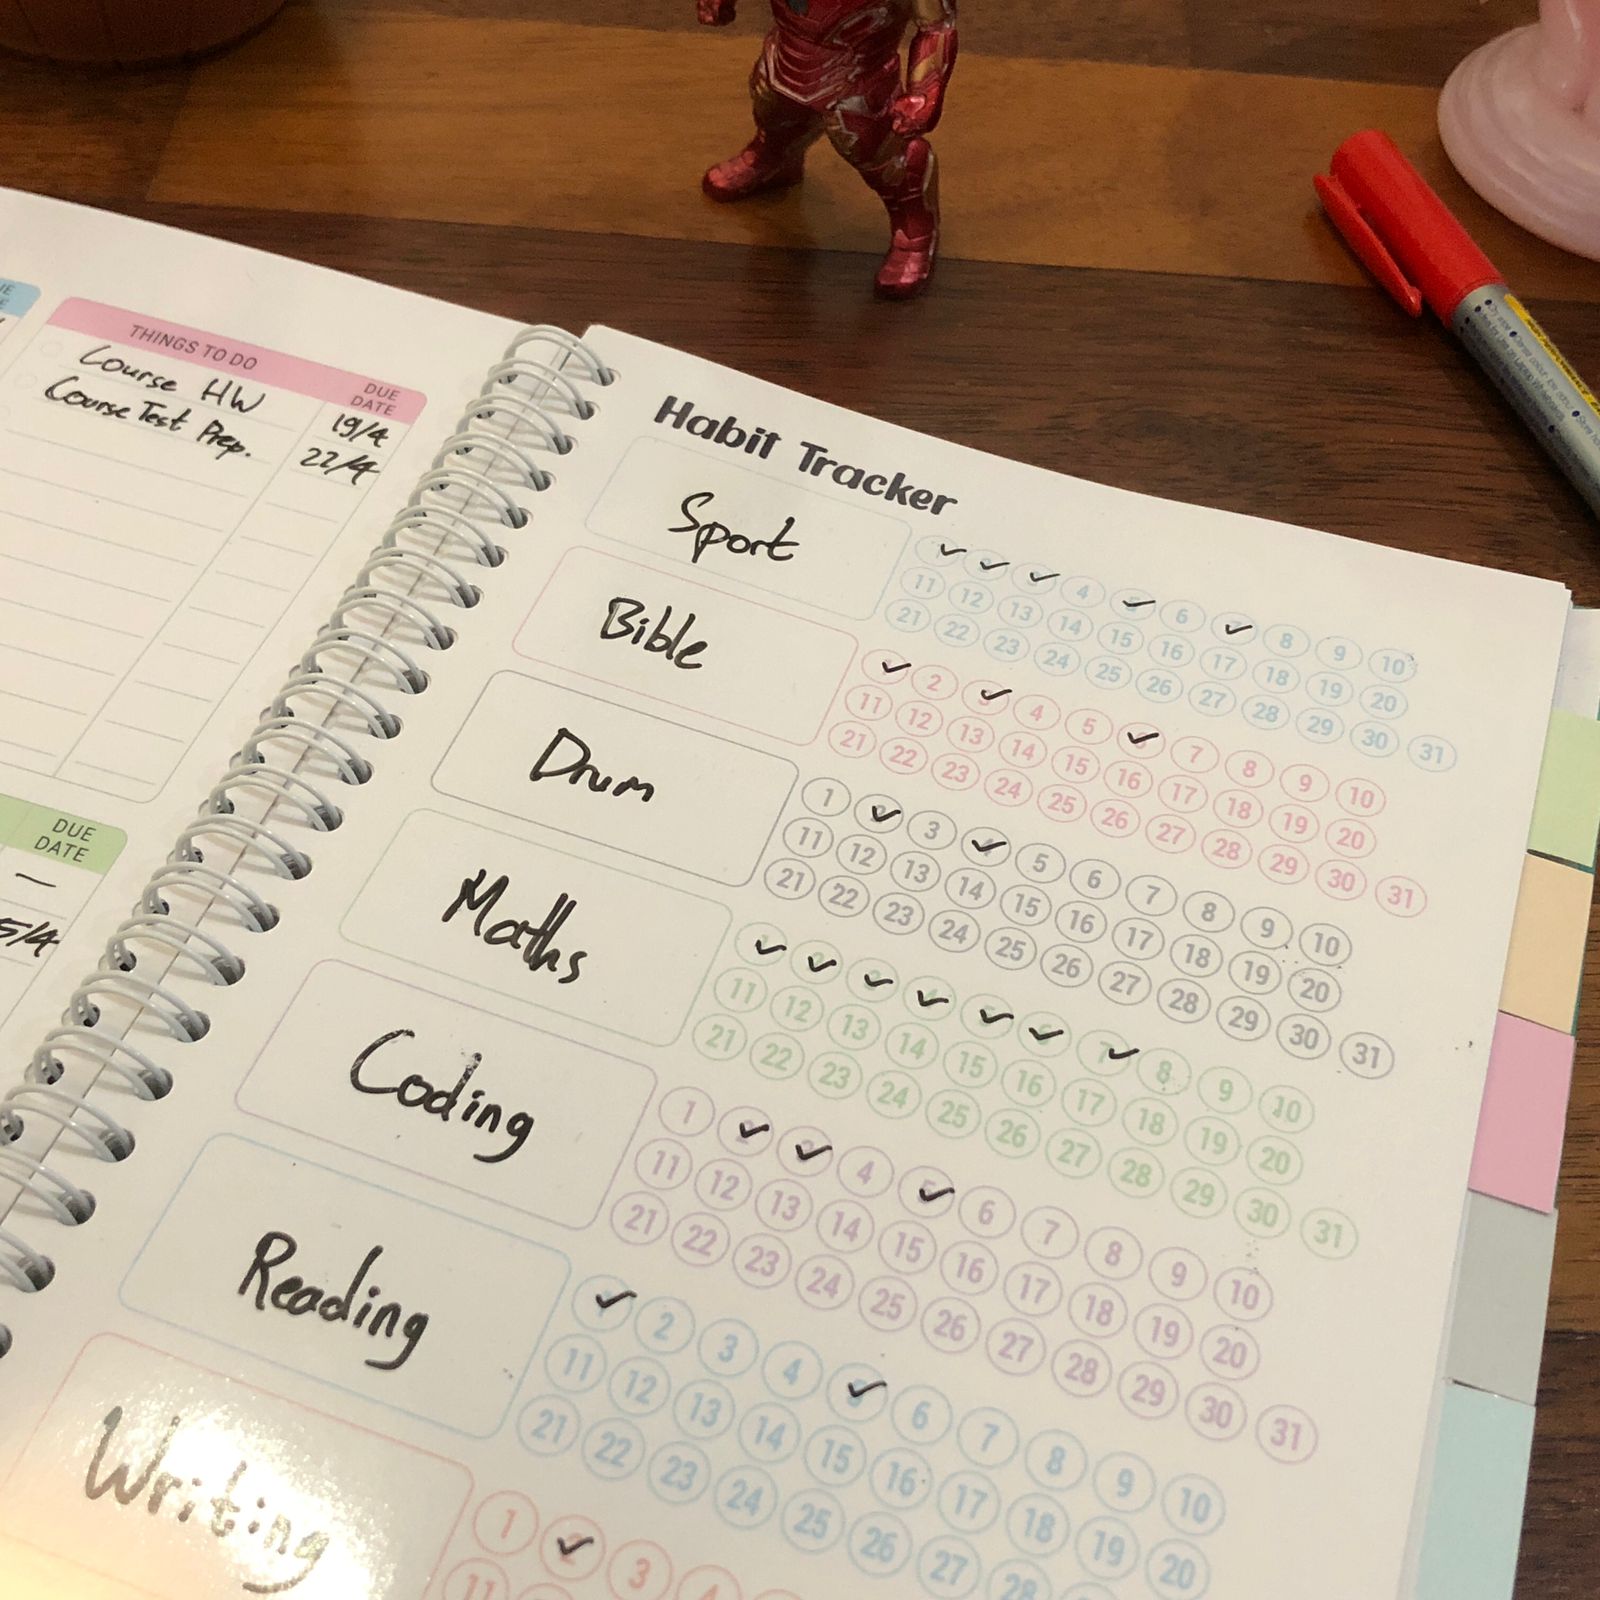 THINGS TO DO
DUE DATE
Course HW 19/4
Course Test Prep. 22/4
DUE DATE
—
5/4
Habit Tracker
Sport
4 6 8 9 10
11 12 13 14 15 16 17 18 19 20
21 22 23 24 25 26 27 28 29 30 31
Bible
2 4 5 7 8 9 10
11 12 13 14 15 16 17 18 19 20
21 22 23 24 25 26 27 28 29 30 31
Drum
1 3 5 6 7 8 9 10
11 12 13 14 15 16 17 18 19 20
21 22 23 24 25 26 27 28 29 30 31
Maths
7 8 9 10
11 12 13 14 15 16 17 18 19 20
21 22 23 24 25 26 27 28 29 30 31
Coding
1 4 5 6 7 8 9 10
11 12 13 14 15 16 17 18 19 20
21 22 23 24 25 26 27 28 29 30 31
Reading
2 3 4 6 7 8 9 10
11 12 13 14 15 16 17 18 19 20
21 22 23 24 25 26 27 28
Writing
1 3 4
11